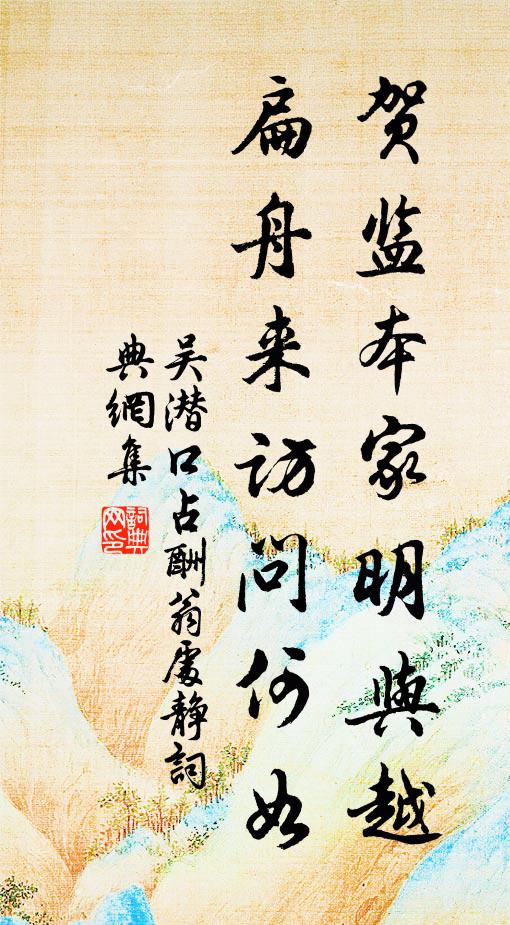 贺监本家明與越
扁舟来访问何如
吴潜口占酬翁處静詞
典網集
詞典網印